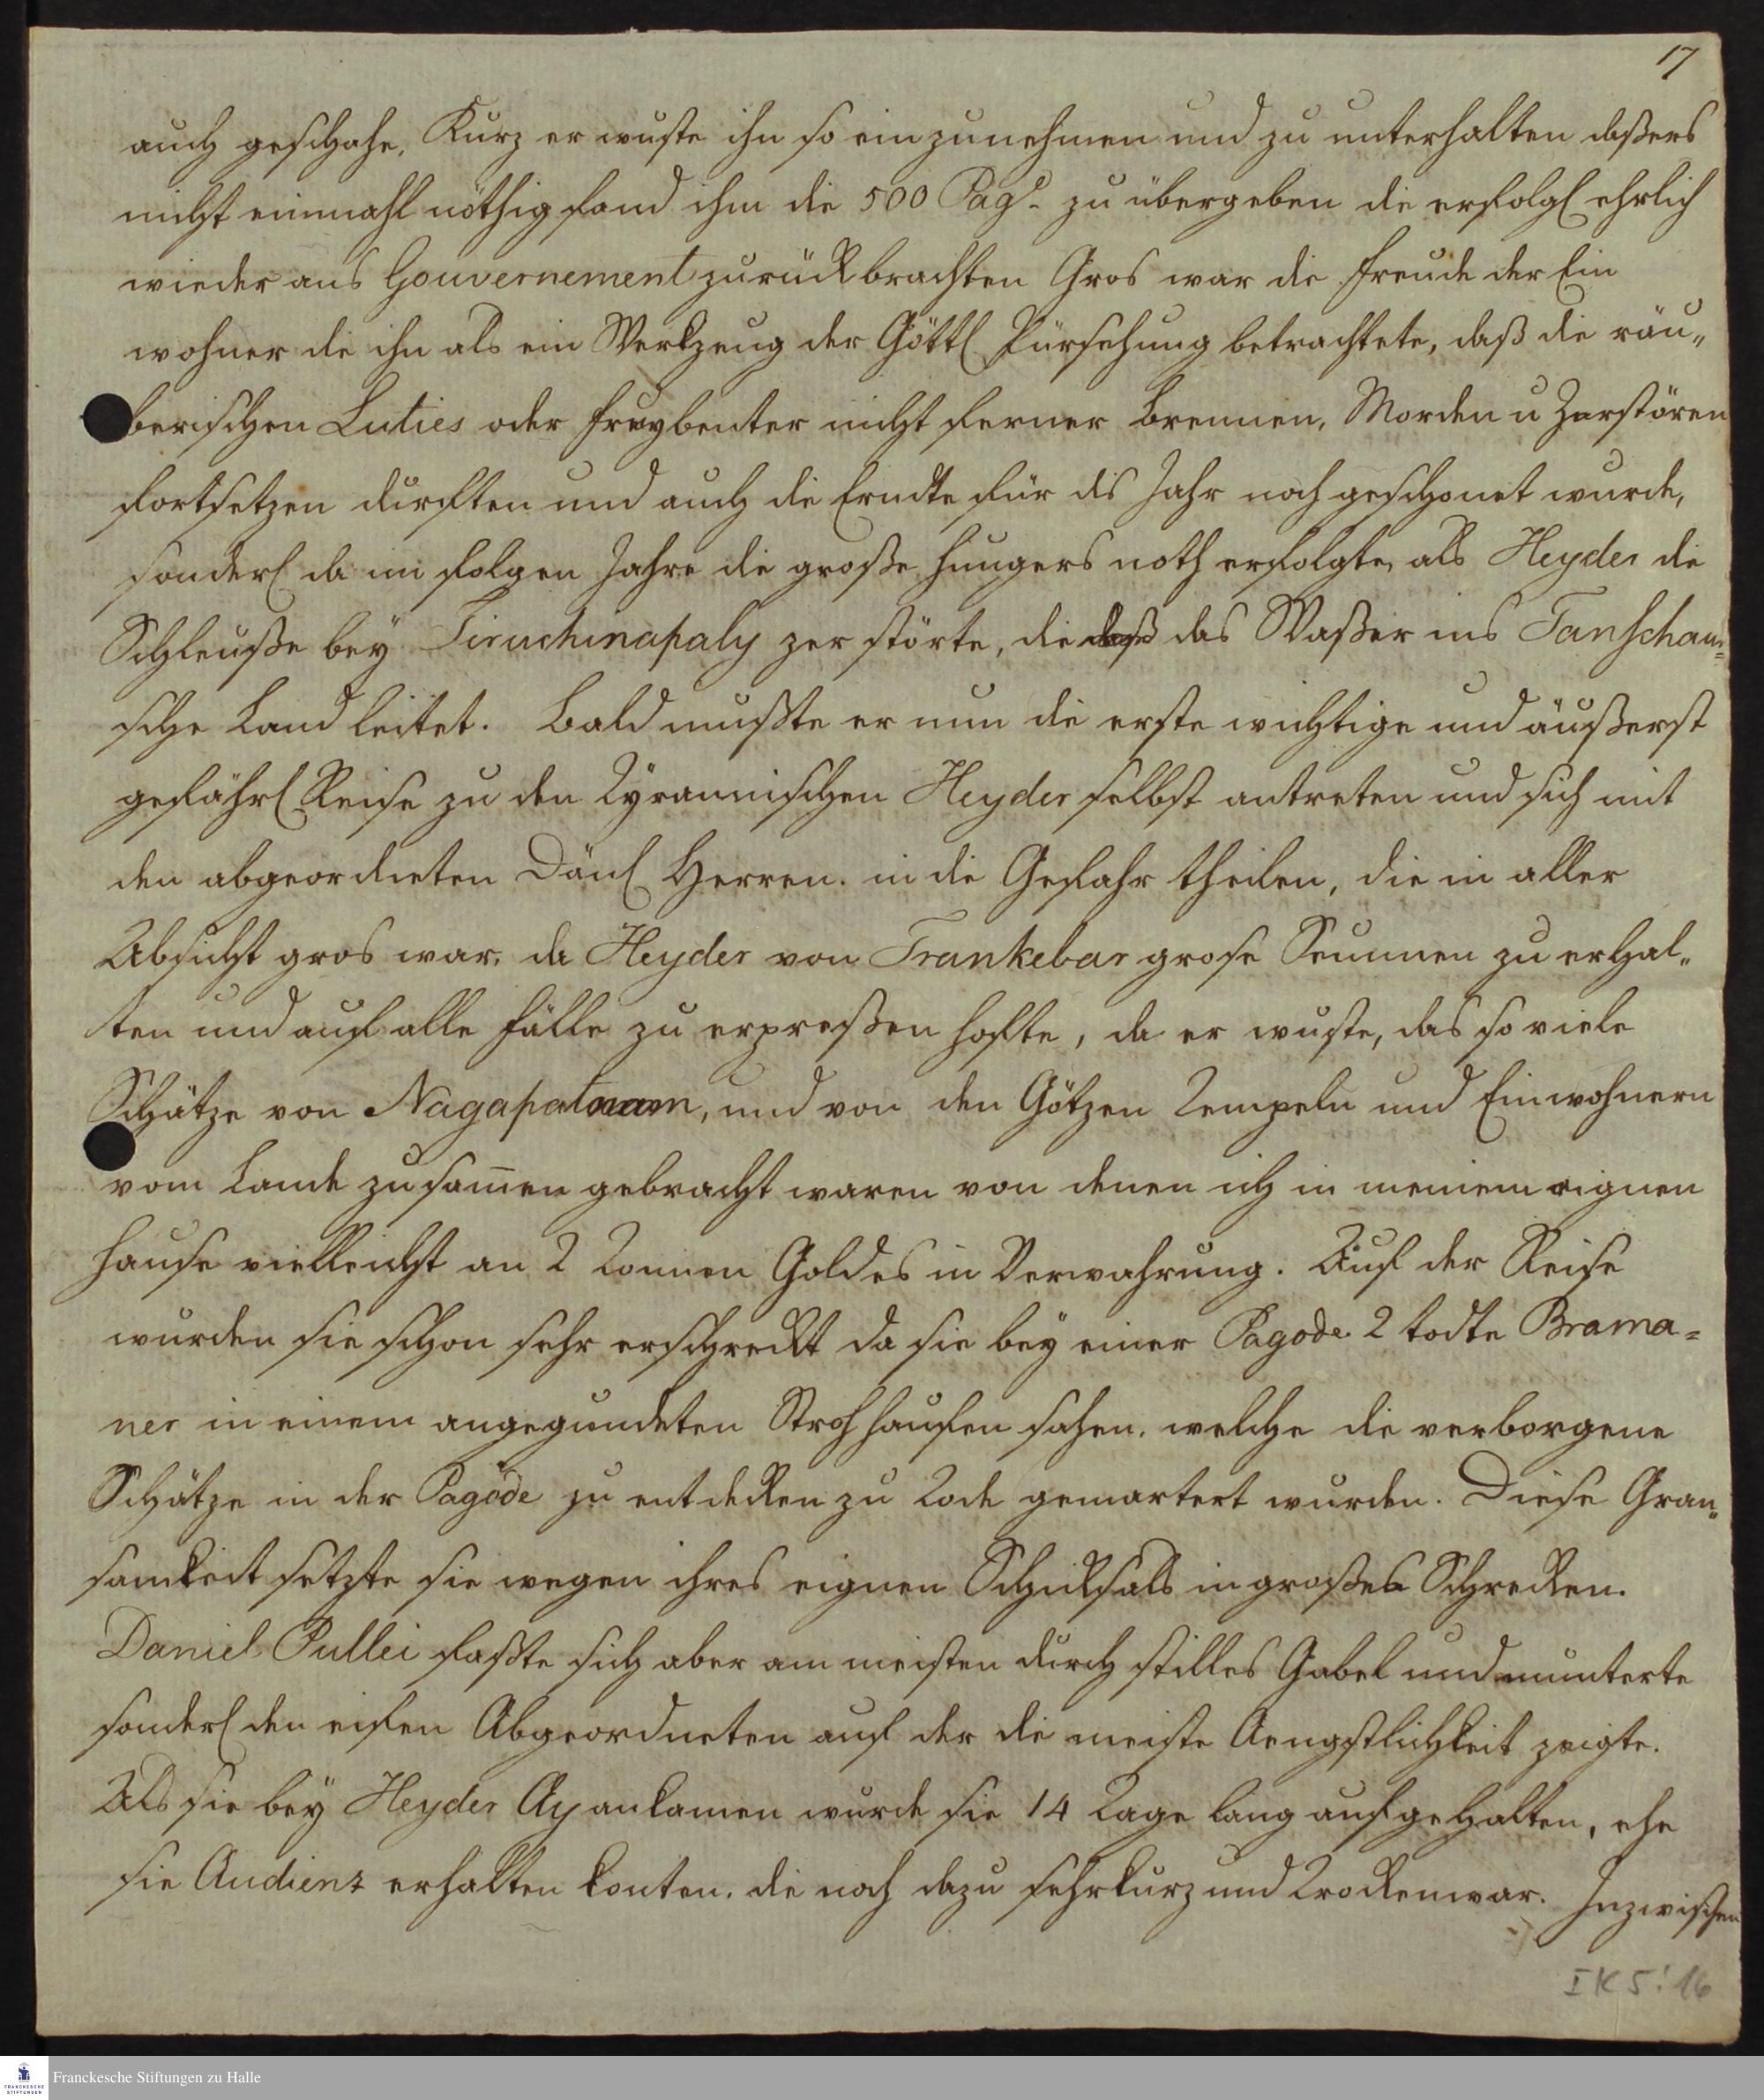 17
auch geschahe, Kurz er wuste ihn so einzunehmen und zu unterhalten daßers
nicht einmahl nöthig fand ihm die 500 Pagd. zu übergeben die erfolgl ehrlich
wieder ans Gouvernement zurückbrachten Gros war die Freude der Ein
wohner die ihn als ein Werkzeug der Göttl Fürsehung betrachtete, daß die räu„
berischen Luties oder Freybeuter nicht ferner Brennen, Morden u Zerstören
fortsetzen durften und auch die Erndte für dis Jahr noch geschonet wurde,
sonderl da im folgen Jahre die große Hungers noth erfolgte, als Heyder die
Schleuße bey Tiruchinapaly zer störte, die das Waßer ins Tanschau=
sche Land leitet. Bald mußte er nun die erste wichtige und äußerst
gefährl Reise zu den Tyrannischen Heyder selbst antreten und sich mit
den abgeordneten Dänl Herren. in die Gefahr theilen, die in aller
Absicht gros war, da Heyder von Trankebar grose Summen zu erhal„
ten und auf alle Fälle zu erpreßen hofte, da er wuste, das so viele
Schätze von Nagapatnam, und von den Götzen Tempeln und Einwohnern
vom Lande zusam̄en gebracht waren von denen ich in meinem eignen
Hause vielleicht an 2 Tonnen Goldes in Verwahrung. Auf der Reise
wurden sie schon sehr erschreckt da sie bey einer Pagode 2 todte Brama=
ner in einem angezundeten Strohhaufen sahen. welche die verborgene
Schätze in der Pagode zu entdecken zu Tode gemartert wurden. Diese Grau„
samkeit setzte sie wegen ihres eignen Schicksals in großes Schrecken.
Daniel Pullei faßte sich aber am meisten durch stilles Gebet und munterte
sonderl den eisen Abgeordneten auf der die meiste Aengstlichkeit zeigte.
Als sie bey Heyder Ay ankamen wurde sie 14 Tage lang aufgehalten, ehe
sie Audienz erhalten konten. die noch dazu sehr kurz und Trocken war. Inzwischen
I K 5:16
Franckesche Stiftungen zu Halle
FRANCKESCHE
STIFTUNGEN